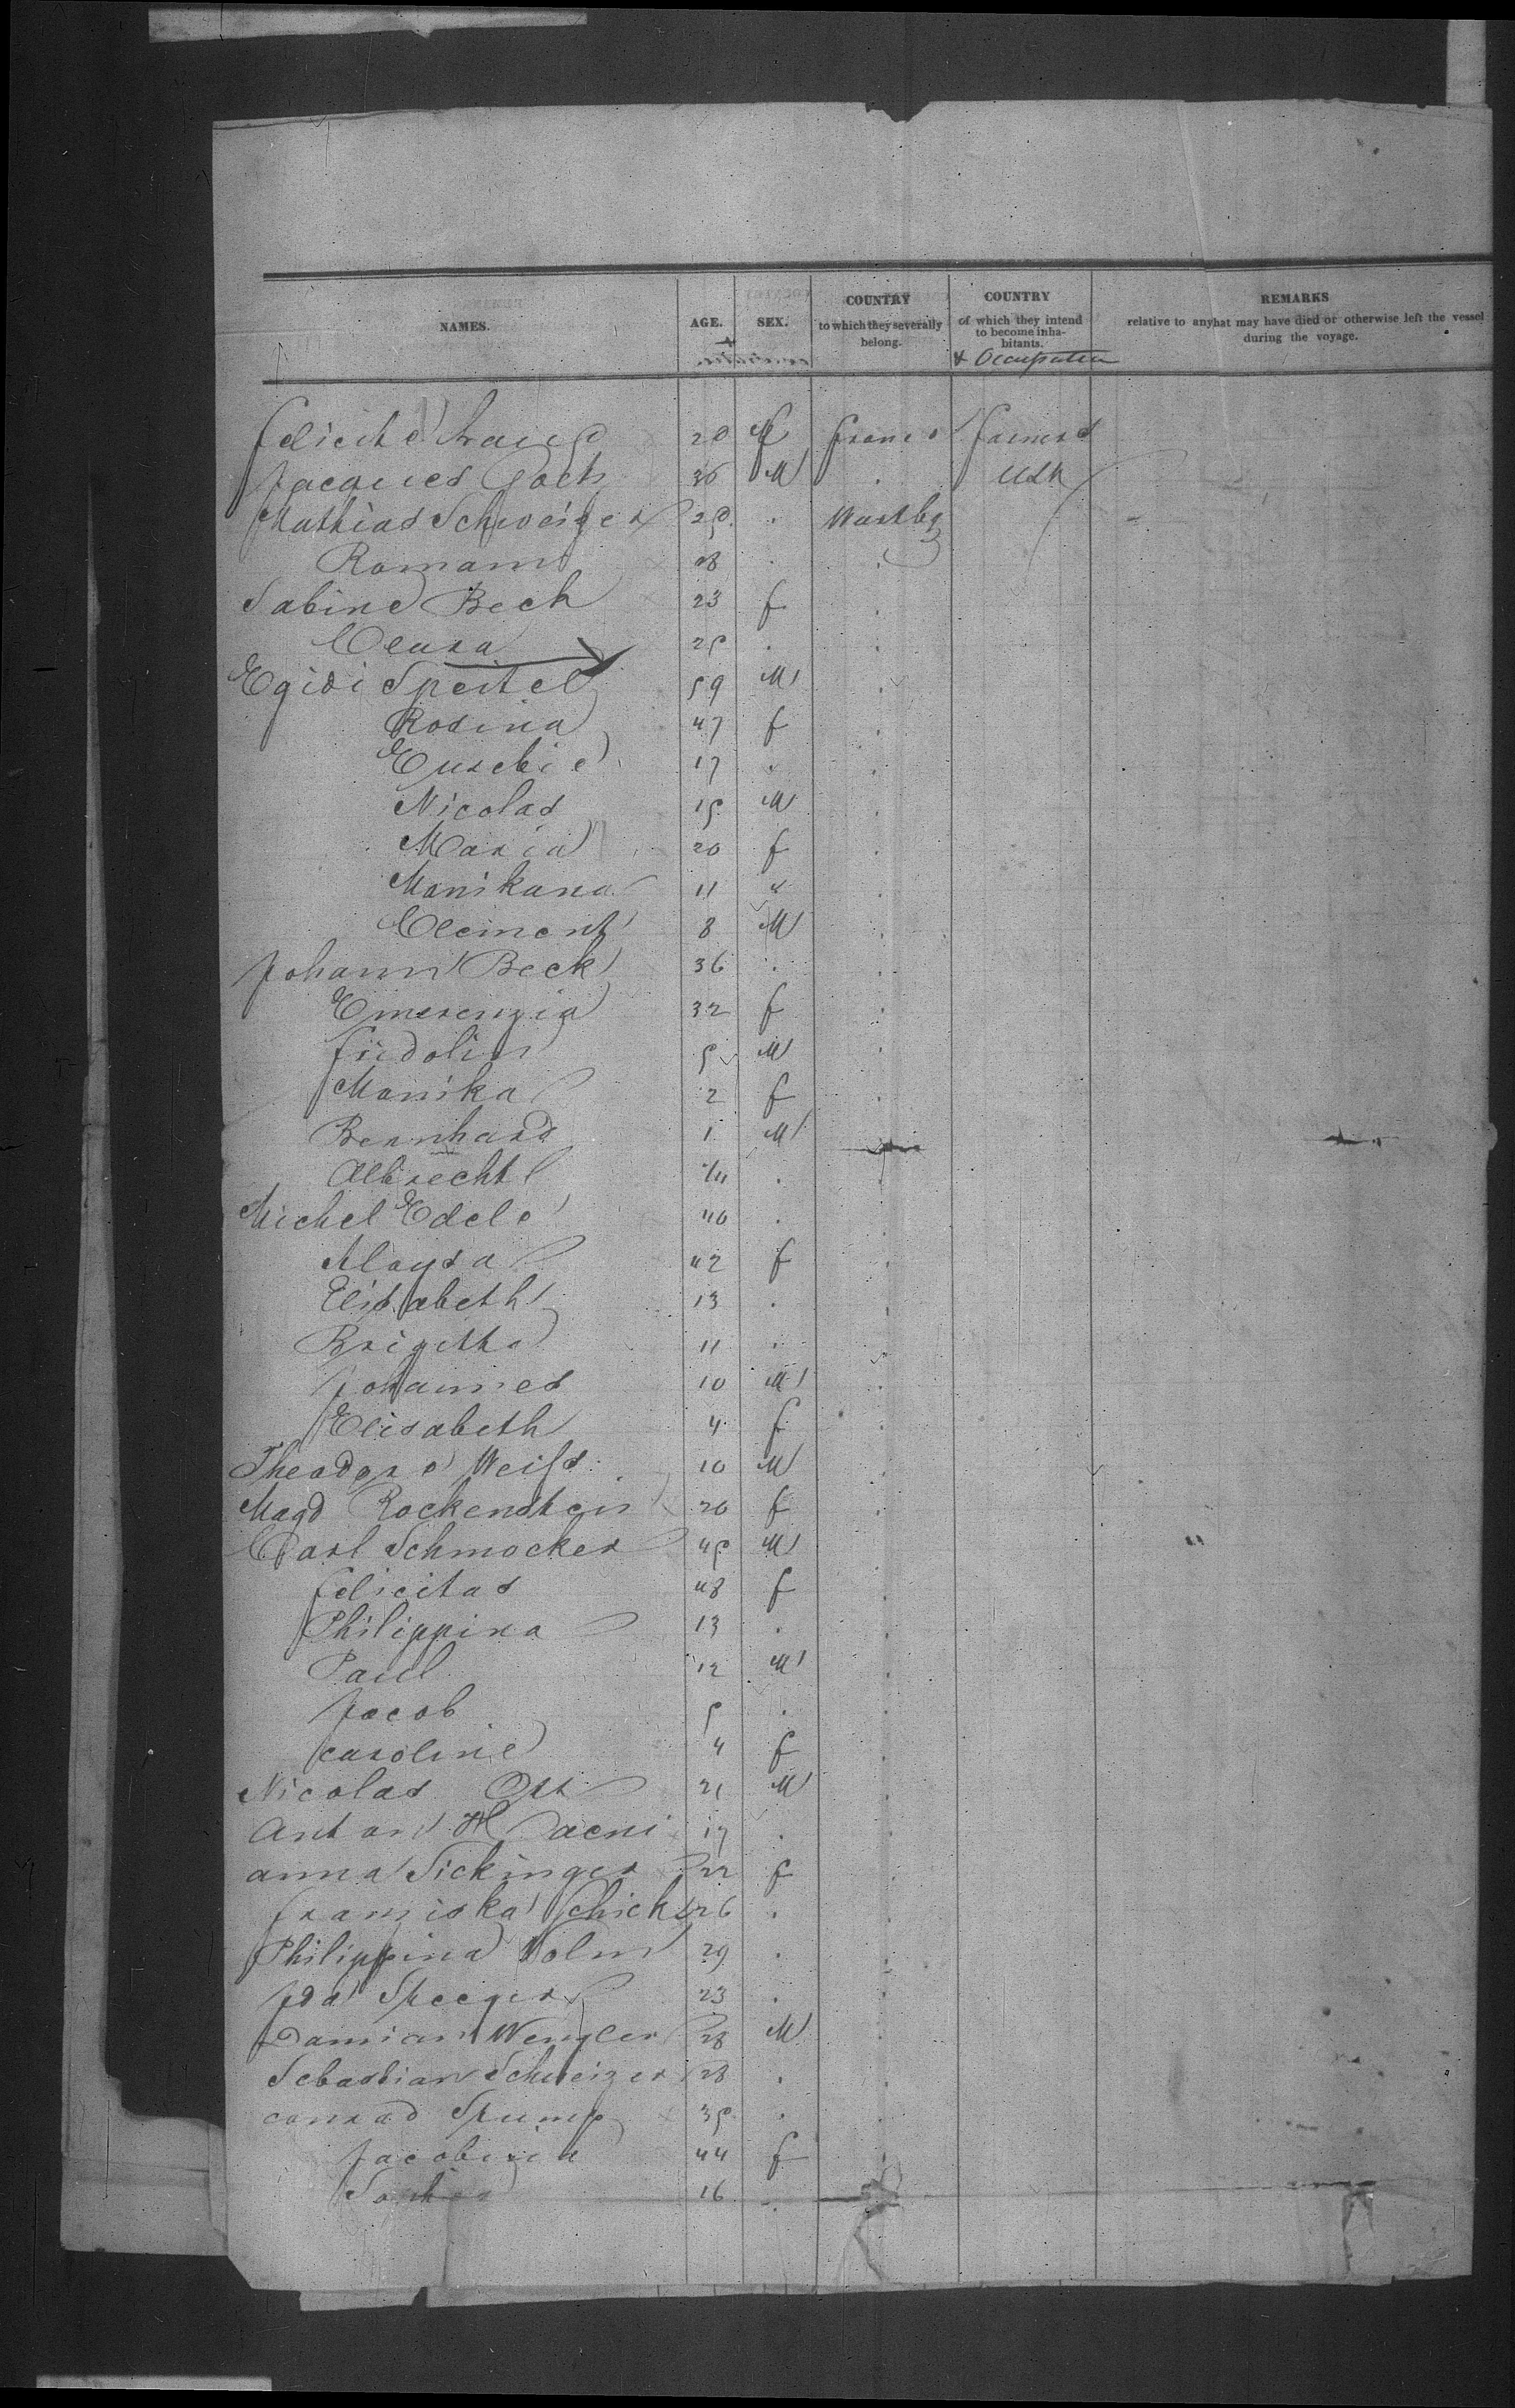 NAMES. AGE. SEX. COUNTRY to which they severally belong. COUNTRY of which they intend to become inhabitants. & Occupation REMARKS relative to anyhat may have died or otherwise left the vessel during the voyage.
Felicité 20 f France farmers
Jacques 36 M . USA
Mathias Schweizer . Wurtbg
Romann . .
Sabine Beck 23 f .
Cleara 25 . .
Egidi Speitel 59 M .
Rosina 47 f .
Eusebie 17 " .
Nicolas 15 M
Maria 20 f .
Monikana 11 " .
Clement 8 M .
Johann Beck 36 . .
Emerenzia 32 f .
Fridolin 5 M .
Monika 2 f .
Bernhard 1 M
Albrecht .
Michel Edele 40 .
Aloysa 42 f .
Elisabeth 13 . .
Brigitte 11 "
Johannes 10 M .
Elisabeth 4 f .
Theodore Weiss 10 M .
Magd Rockenstein 20 f .
Carl Schmocker 45 M "
Felicitas 48 f .
Philippina 13 . .
Paul 12 M .
Jacob 5 . .
Caroline 4 f .
Nicolas Ott 21 M .
Anton 17 . .
Anna Sickinger 22 f .
Franziska Schick 26 . .
Philippina Volm 29 . .
Ida 23 . .
Damian Wengler 28 M .
Sebastian Schweizer 28 . .
Conrad Stump 35 . .
Jacobina 44 f .
Sophie 16 .